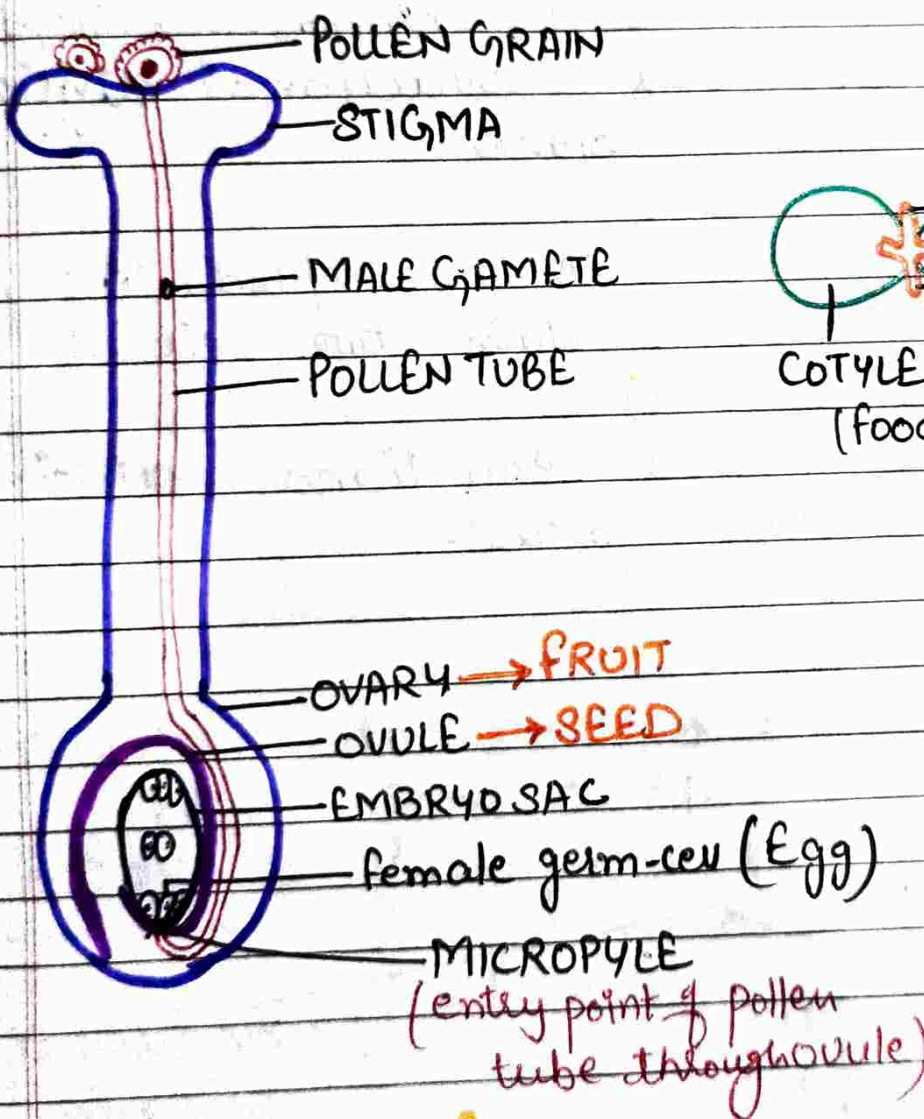 POLLEN GRAIN
STIGMA
MALE GAMETE
POLLEN TUBE
COTYLE
(food
OVARY → FRUIT
OVULE → SEED
EMBRYO SAC
female germ-cell (Egg)
MICROPYLE
(entry point of pollen
tube through ovule)